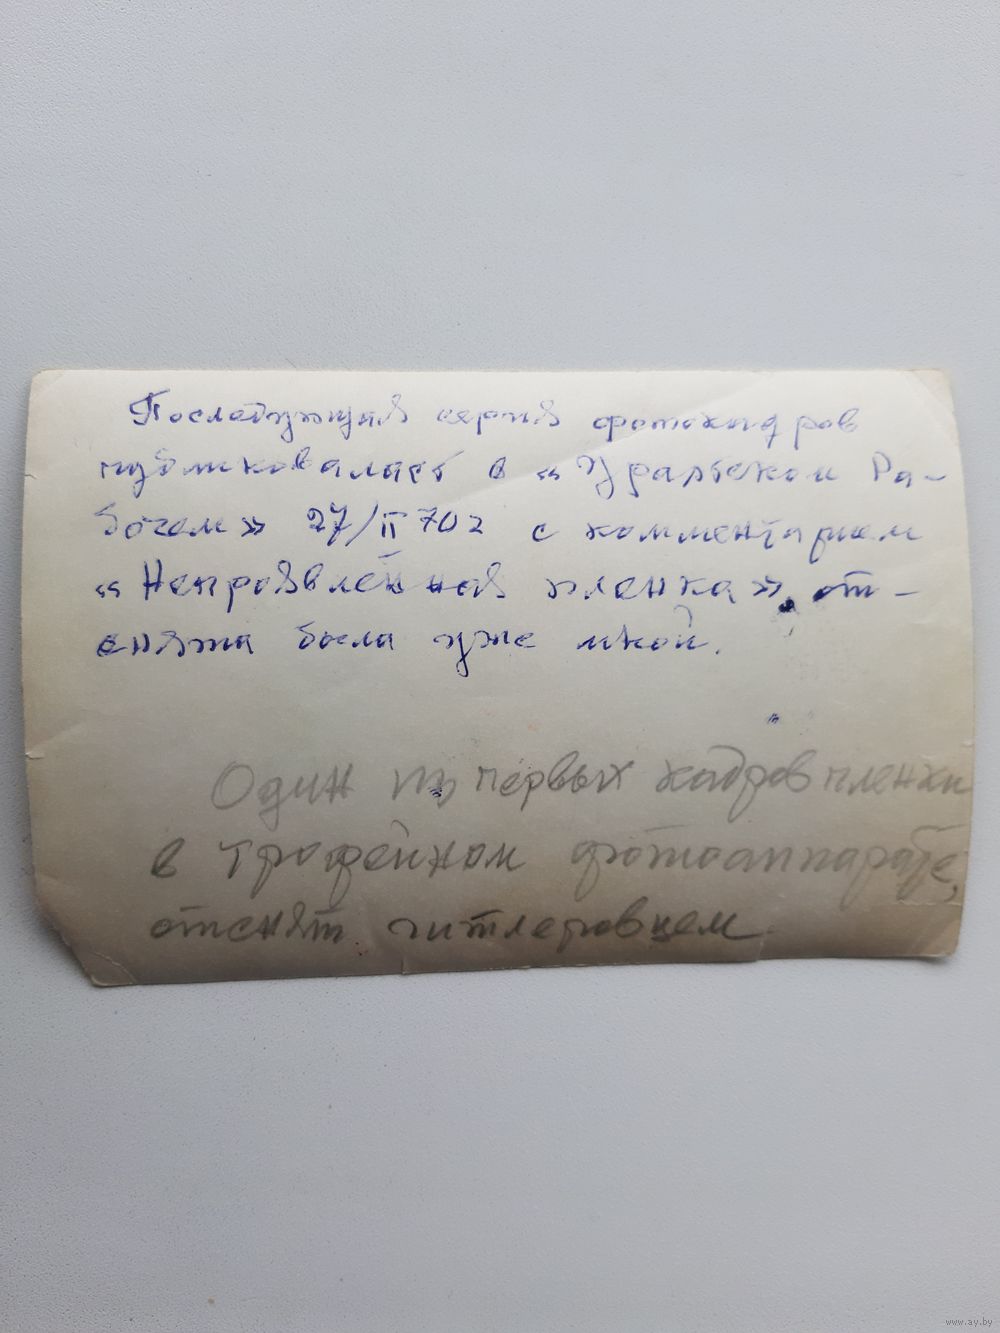 Последующая серия фотокадров
публиковалась в «Уральском Ра-
бочем» 27/II 70 г с комментарием
«Непроявленная пленка», от-
снята была уже мной.
Один из первых кадров пленки
в трофейном фотоаппарате,
отснят гитлеровцем
www.ay.by